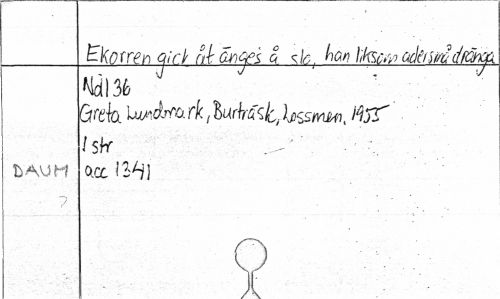 Ekorren gick åt änges å slo, han liksom adersmå dränga
Nd136
Greta Lundmark, Burträsk, Lossmen, 1955
1 str
DAUM acc 1341